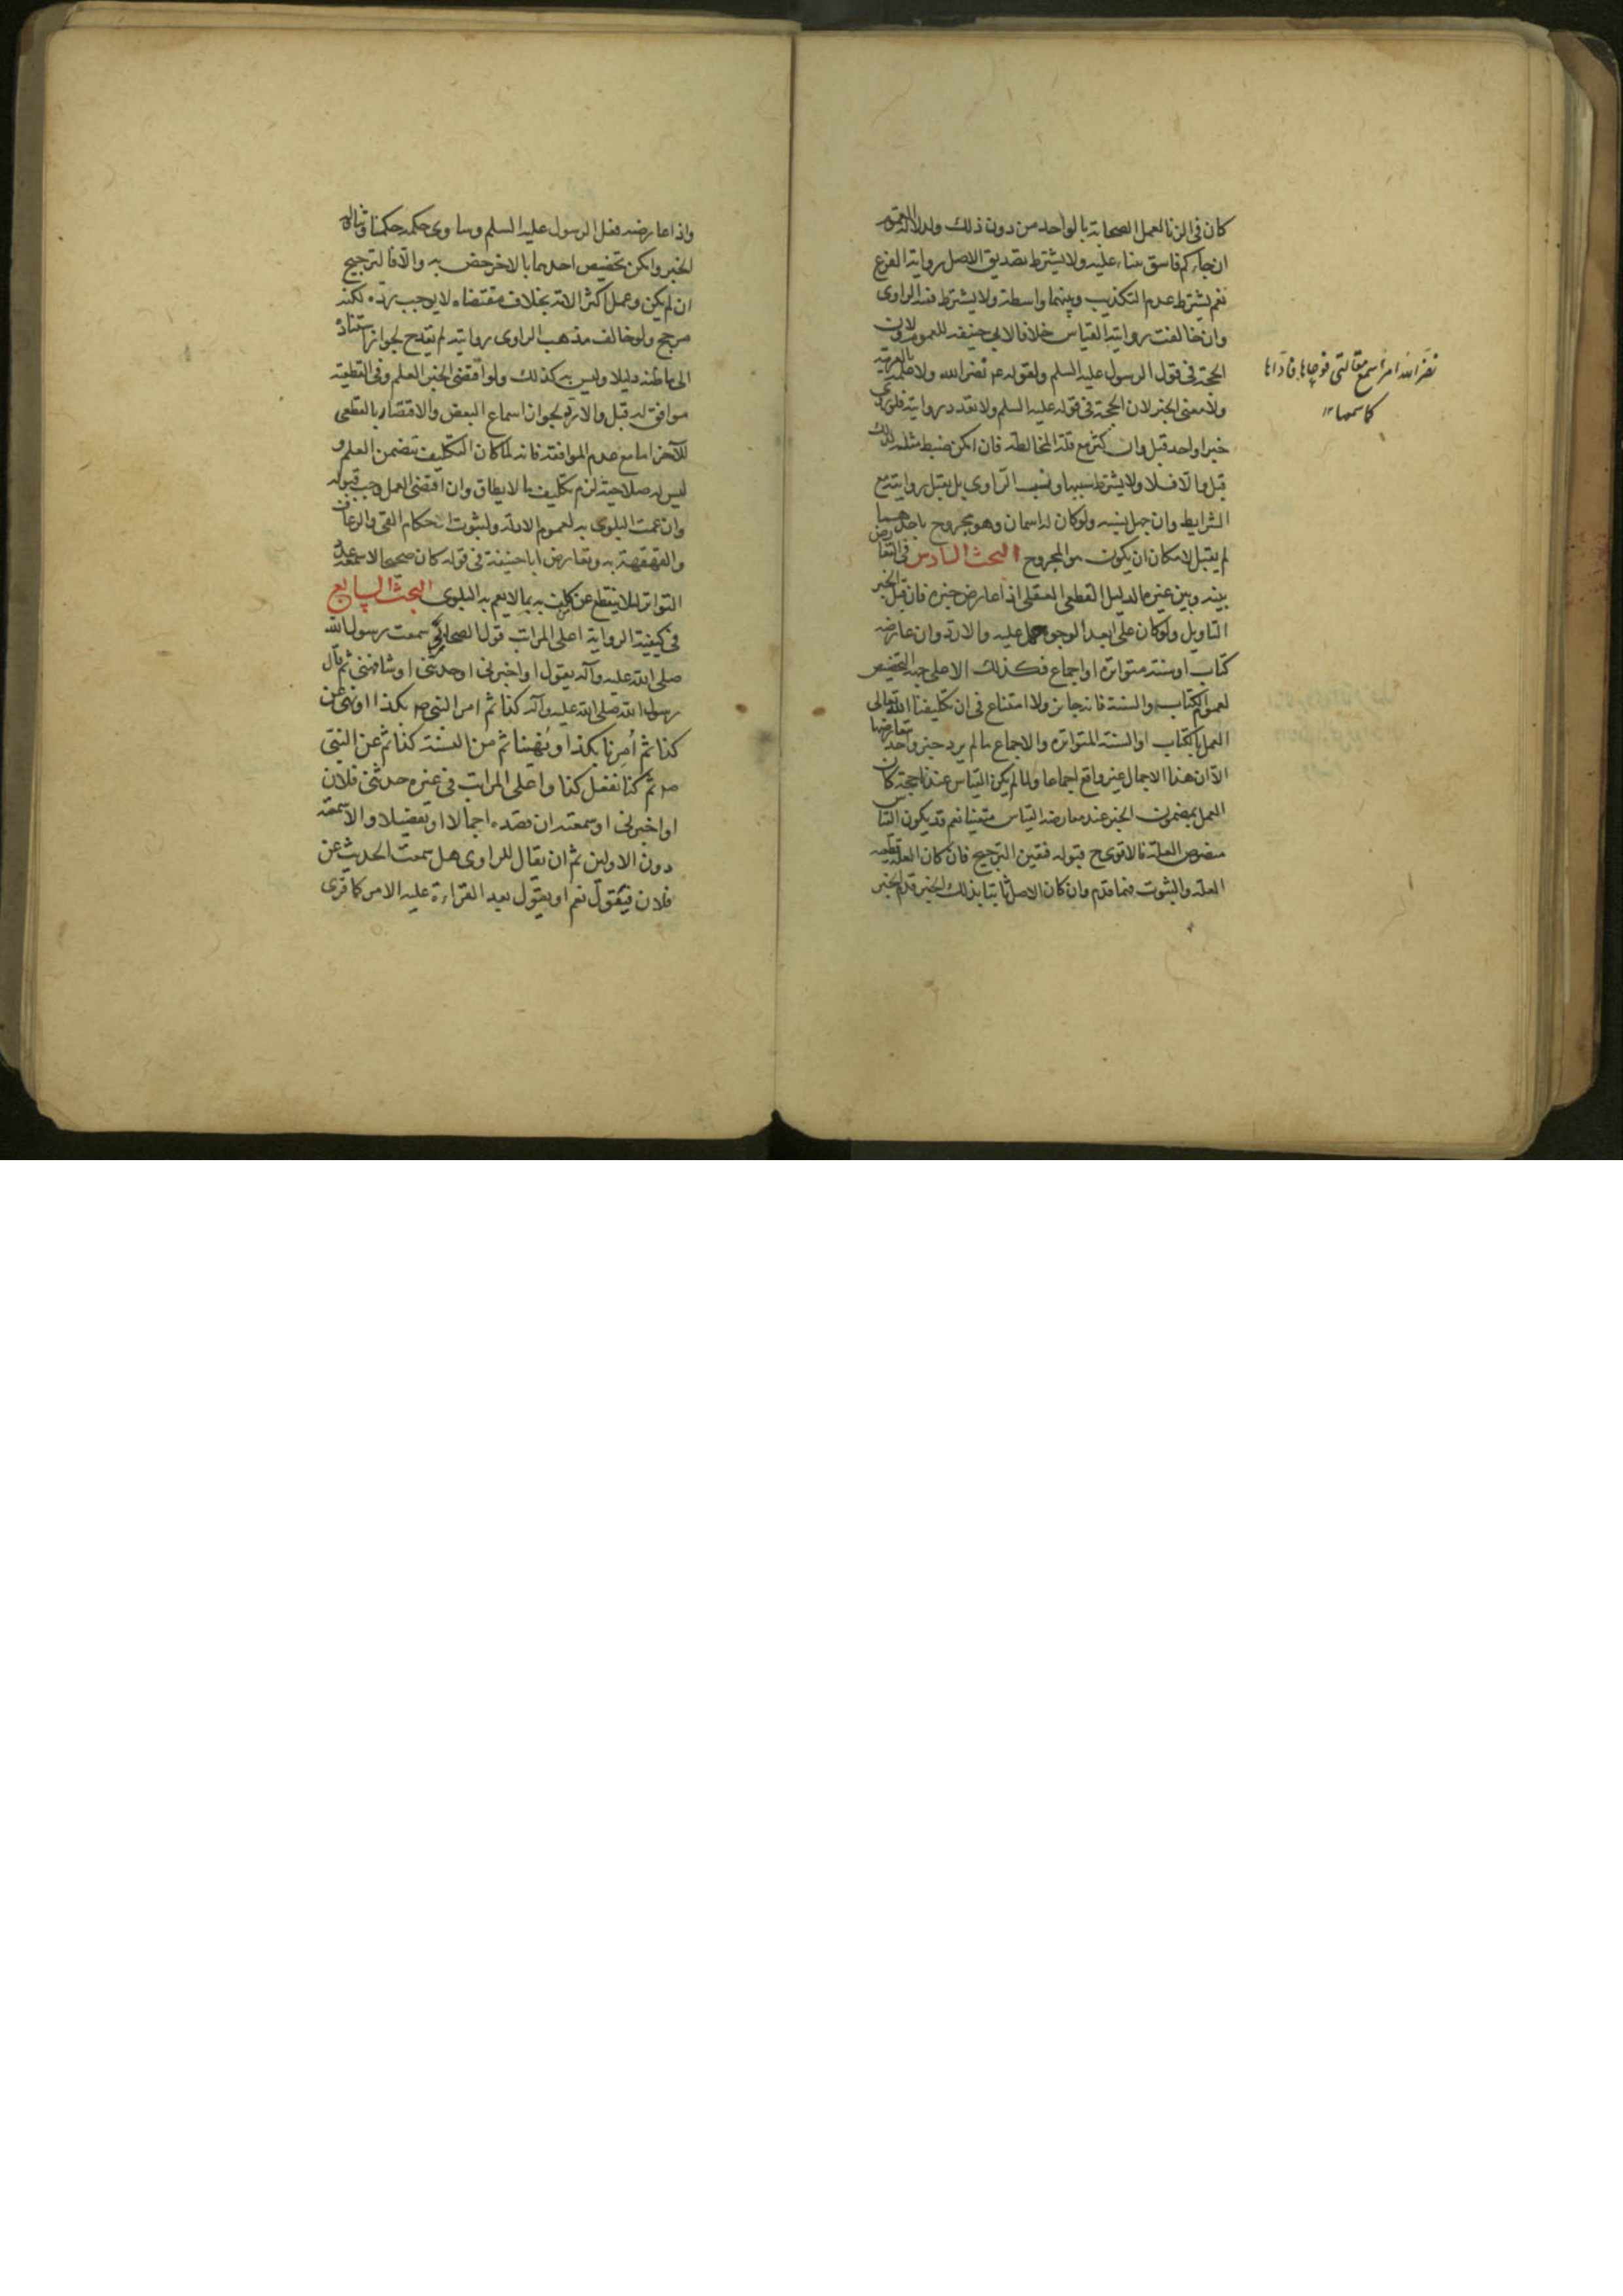 كان فى الزنا لعمل الصحابة بالواحد من دون ذلك ولدلالة العموم
ان جاءكم فاسق بنباء عليه ولا يشترط تصديق الاصل رواية الفرع
نعم يشترط عدم التكذيب وبينهما واسطة ولا يشترط فقه الراوى
وان خالفت روايته القياس خلافا لابى حنيفه للعموم ولان
الحجة فى قول الرسول عليه السلم ولقوله عم نضر الله ولا علمه بالعربية
ولا معنى الخبر لان الحجة فى قوله عليه السلم ولا تعدد روايته فلو روى
خبرا واحد قبل وان كثر مع قلة المخالطة فان امكن ضبط مثله لذلك
قبل والا فلا ولا يشترط نسب الراوى بل يقبل روايته مع
الشرايط وان جهل نسبه ولو كان له اسمان وهو مجروح باحدهما
لم يقبل لامكان ان يكون هو المجروح البحث السادس فى التعارض
بينه وبين غيره الدليل القطعى العقلى اذا عارض خبره فان قبل الخبر
التاويل ولو كان على ابعد الوجوه حمل عليه والا رد وان عارضه
كتاب او سنة متواترة او اجماع فكذلك الا على جهة التخصيص
لعموم الكتاب والسنة فانه جائز ولا امتناع فى ان تكليفنا الله تعالى
العمل بالكتاب او السنة المتواترة والاجماع ما لم يرد خبر واحد يعارضها
الا ان هذا الاجمال غير واقع اجماعا ولما لم يكن القياس عندنا حجة كان
العمل بمضمون الخبر عند معارضة القياس متعينا نعم قد يكون القياس
منصوص العلة فالاقوى ح قبوله فتعين الترجيح فان كان العلة قطعية
العلة والثبوت فهما قدم وان كان الاصل ثابتا بذلك الخبر قدم الخبر
نضر الله امرأ سمع مقالتى فوعاها فاداها
كما سمعها ١٢
واذا عارضه فعل الرسول عليه السلم وساوى حكمه حكمنا وتناوله
الخبر وامكن تخصيص احدهما بالاخر خص به والا فالترجيح
ان لم يكن وعمل اكثر الامة بخلاف مقتضاه لا يوجب رده لكنه
مرجح ولو خالف مذهب الراوى روايته لم يقدح لجواز استناده
الى ما ظنه دليلا وليس كذلك ولو اقتضى الخبر العلم وفى القطعية
موافق له قبل والا رد لجواز اسماع البعض والاقتصار بالقطعى
للآخر اما مع عدم الموافقة فانه لما كان التكليف تتضمن العلم و
ليس له صلاحيته لزم تكليف ما لا يطاق وان اقتضى العمل وجب قبوله
وان عمت البلوى به لعموم الادلة ولثبوت احكام القى والرعاف
والقهقهة به وتعارض ابا حنيفة فى قوله كان صحيحا لاسمعه عدد
التواتر لئلا ينقطع عن كلف به بما لا يعم به البلوى البحث السابع
فى كيفية الرواية اعلى المراتب قول الصحابى سمعت رسول الله
صلى الله عليه وآله يقول او اخبرنى او حدثنى او شافهنى ثم قال
رسول الله صلى الله عليه وآله كذا ثم امر النبى ص بكذا او نهى عن
كذا ثم أمرنا بكذا او نُهينا ثم من السنة كذا ثم عن النبى
ص ثم كنا نفعل كذا واعلى المراتب فى غيره حدثنى فلان
او اخبرنى او سمعته ان قصده اجمالا او تفصيلا والا سمعته
دون الاولين ثم ان يقال للراوى هل سمعت الحديث عن
فلان فيقول نعم او يقول بعد القراءة عليه الامر كما قرى